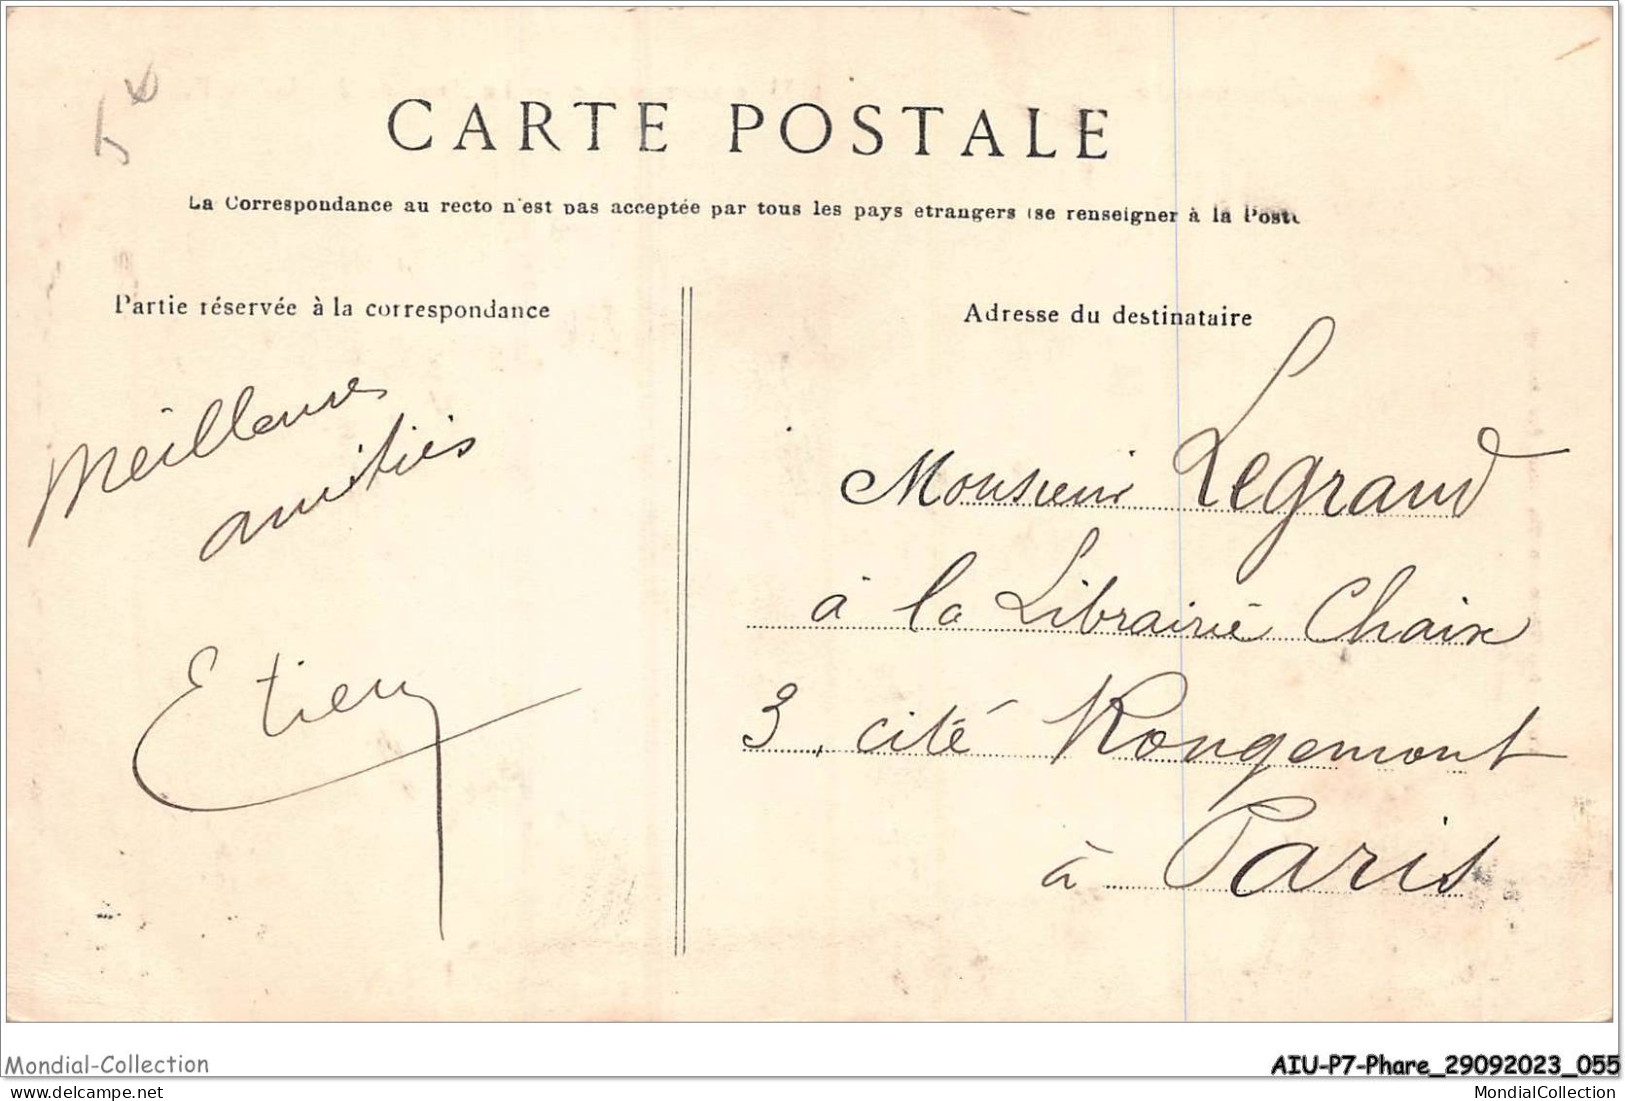 CARTE POSTALE
La Correspondance au recto n'est pas acceptée par tous les pays etrangers (se renseigner à la Poste
Partie réservée à la correspondance
Meilleures
amitiés
Adresse du destinataire
Monsieur Legrand
à la Librairie Chaix
3, cité Rougemont
à Paris
Mondial-Collection
AIU-P7-Phare_29092023_055
www.delcampe.net
MondialCollection